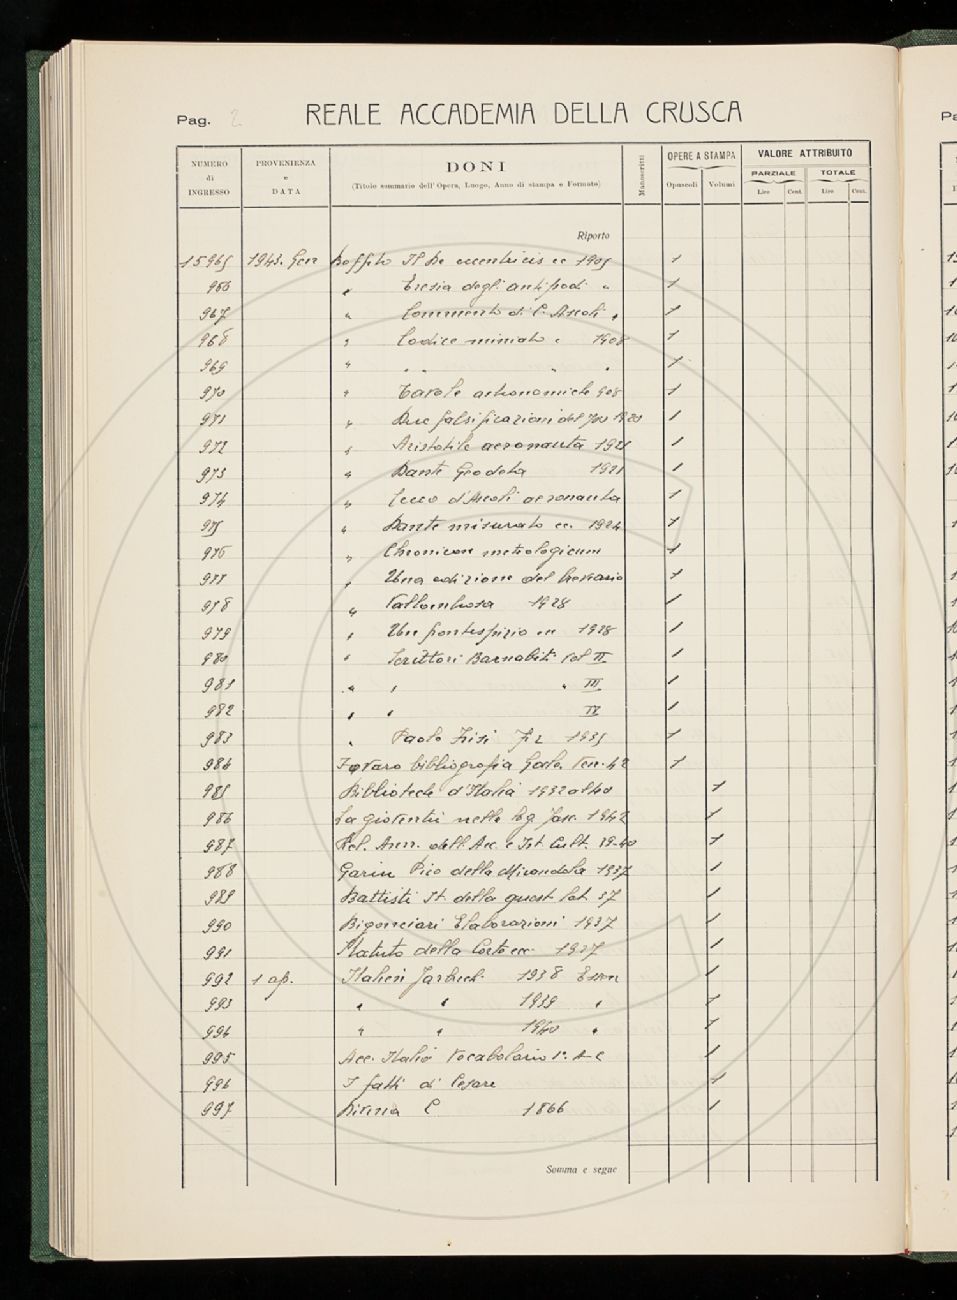 Pag. 2 REALE ACCADEMIA DELLA CRUSCA
NUMERO di INGRESSO
PROVENIENZA e DATA
DONI
(Titolo sommario dell'Opera, Luogo, Anno di stampa e Formato)
Manoscritti
OPERE A STAMPA
Opuscoli Volumi
VALORE ATTRIBUITO
PARZIALE TOTALE
Lire Cent. Lire Cent.
Riporto
15965 1943. Gen Boffito Il De eccentricis ec 1905 /
966 " Eresia degli antipodi " /
967 " Commento di C. Ascoli " /
968 " Codice miniato " 1908 /
969 " " " " " /
970 " Tavole astronomiche 908 /
971 " Due falsificazioni del 1920 /
972 " Aristotile aeronauta 1921 /
973 " Dante Geodeta 1921 /
974 " Cecco d'Ascoli aeronauta /
975 " Dante misurato ec. 1924 /
976 " Chronicon metrologicum /
977 " Una edizione del breviario /
978 " Vallombrosa 1928 /
979 " Un frontespizio ec 1928 /
980 " Scrittori Barnabiti Vol II /
981 " " " III /
982 " " IV /
983 " Paolo Frisi 1935 /
984 bibliografia Gal. 42 /
985 Biblioteche d'Italia 1932 al 40 /
986 La gioventù nelle leg. fasc. 1942 /
987 Rel. Ann. dell. Acc. e Ist. Cult. 39-40 /
988 Garin Pico della Mirandola 1937 /
989 Battisti St. della quest lad. 37 /
990 Bigonciari Elaborazioni 1937 /
991 Statuto della Corte ec. 1937 /
992 1 ap. Italien Jarbuch 1938 Essen /
993 " " 1939 " /
994 " " 1940 " /
995 Acc. Italia Vocabolario 1° A-C /
996 I fatti di Cesare /
997 C 1866 /
Somma e segue